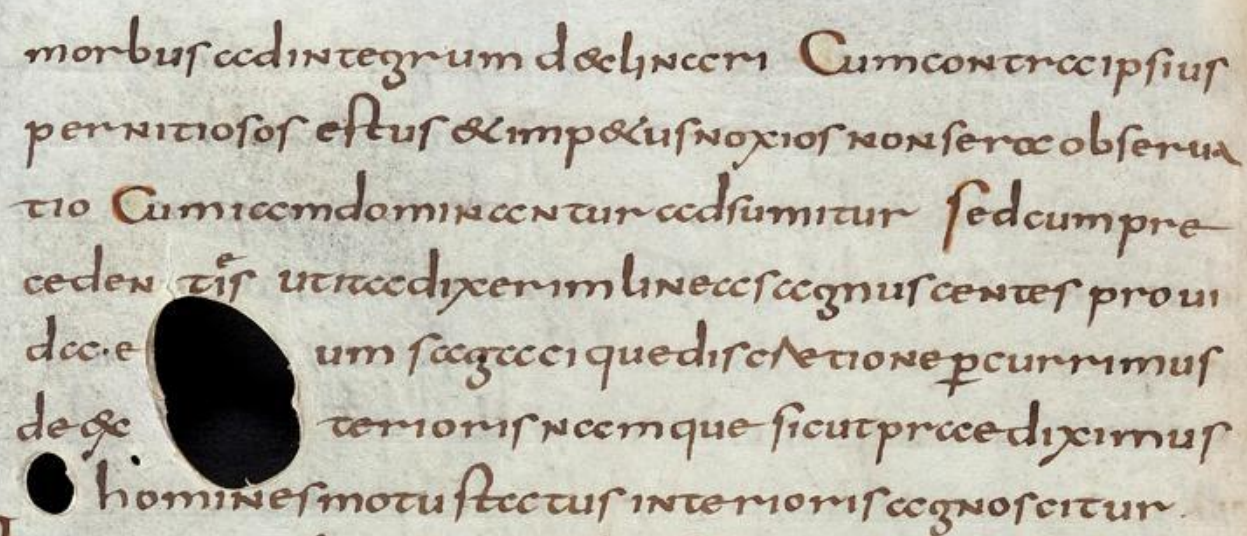 morbus adintegrum declinari Cumcontraipsius
pernitiosos estus &imp&usnoxios nonsera observa
tio Cumiamdominantur adsumitur sedcumpre
ceden tis utitadixerim lineas agnuscentes provi
da·e um sagaci quediscretione pcurrimus
de&c terioris namque sicutpraediximus
homines motu status interioris agnoscitur